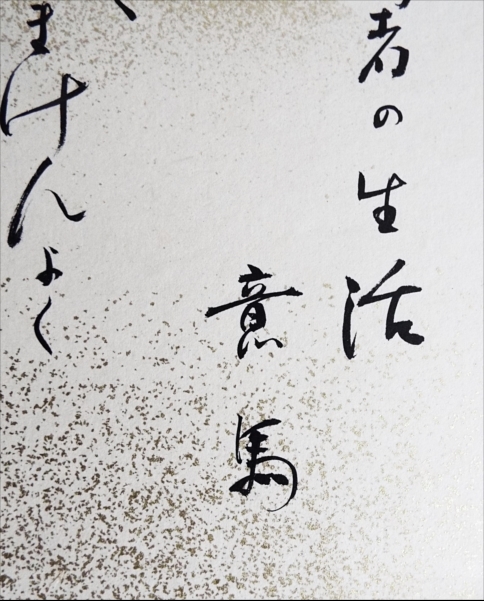 者の生活
意馬
まけんよく